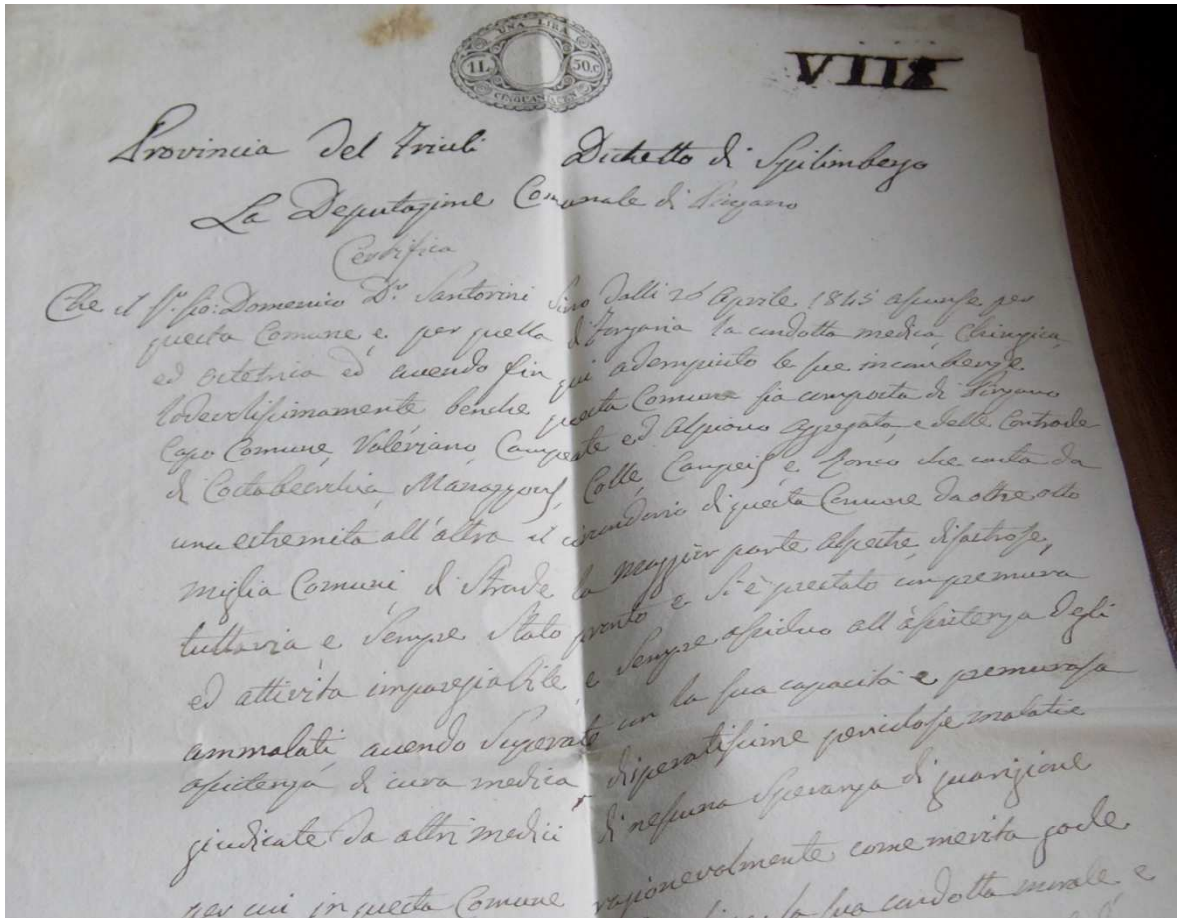 UNA LIRA
1L. 50.c
CINQUANTA C.
VIII
Provincia del Friuli Distretto di Spilimbergo
La Deputazione Comunale di Pinzano
Certifica
Che il Sr. Gio: Domenico Dr. Santorini sino dalli 26 Aprile 1845 assunse per
questa Comune e per quella di Forgaria la condotta medica, Chirurgica,
ed ostetricia ed avendo fin qui adempiuto le sue incombenze
lodevolissimamente benche questa Comune sia composta di Pinzano
Capo Comune, Valeriano, Campeate ed Alpiono aggregata, e delle Contrade
di Costabeorchia, Manazzons, Colle, Campeis, e Ronco che conta da
una estremità all'altra il circondario di questa Comune da oltre otto
miglia Comuni di Strade la maggior parte alpestre, disastrose,
tuttavia è sempre stato pronto e si è prestato con premura
ed attività impareggiabile, e sempre assiduo all'assistenza degli
ammalati, avendo superate con la sua capacità e premurosa
assistenza di cura medica disperatissime pericolose malatie
giudicate da altri medici di nessuna speranza di guarigione
per cui in questa Comune ragionevolmente come merita gode
la sua condotta morale e